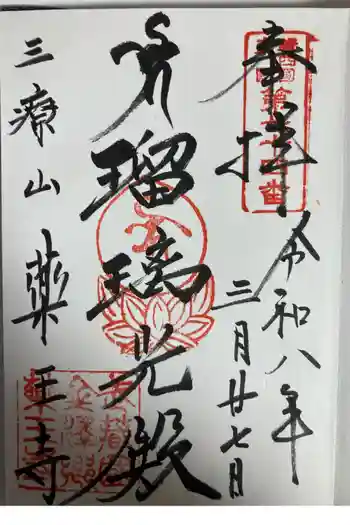 奉拝
令和八年
三月廿七日
瑠璃光殿
三療山 薬王寺